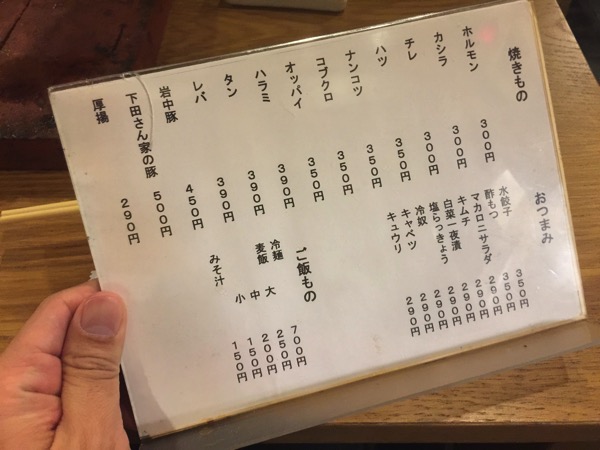 焼きもの
ホルモン 300円
カシラ 300円
チレ 300円
ハツ 350円
ナンコツ 350円
コブクロ 350円
オッパイ 350円
ハラミ 390円
タン 390円
レバ 390円
岩中豚 450円
下田さん家の豚 500円
厚揚 290円
おつまみ
水餃子 350円
酢もつ 350円
マカロニサラダ 290円
キムチ 290円
白菜一夜漬 290円
塩らっきょう 290円
冷奴 290円
キャベツ 290円
キュウリ 290円
ご飯もの
冷麺 700円
麦飯 大 250円
中 200円
小 150円
みそ汁 150円